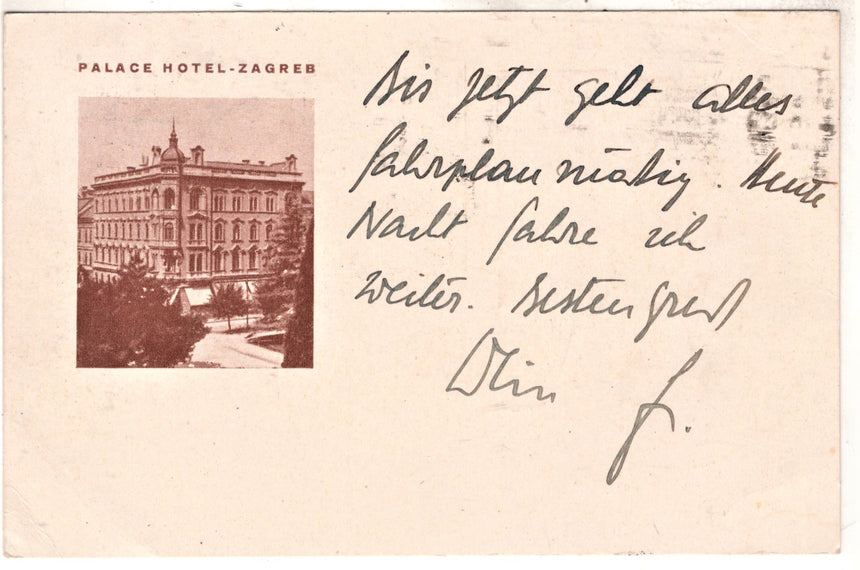 PALACE HOTEL-ZAGREB
Bis jetzt geht alles
fahrplanmäßig. Heute
Nacht fahre ich
weiter. Besten Gruß
Dein F.